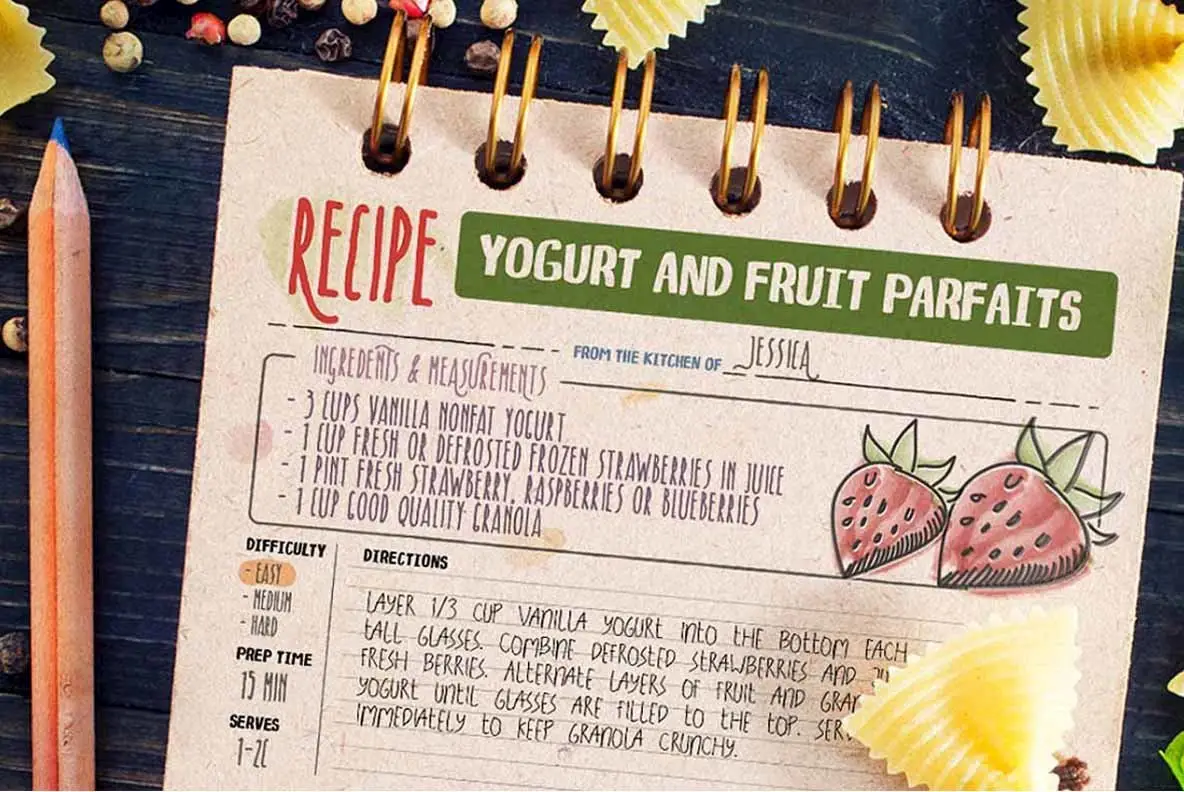 RECIPE
YOGURT AND FRUIT PARFAITS
FROM THE KITCHEN OF JESSICA
INGREDENTS & MEASUREMENTS
- 3 CUPS VANILLA NONFAT YOGURT
- 1 CUP FRESH OR DEFROSTED FROZEN STRAWBERRIES IN JUICE
- 1 PINT FRESH STRAWBERRY, RASPBERRIES OR BLUEBERRIES
- 1 CUP GOOD QUALITY GRANOLA
DIFFICULTY
- EASY
- MEDIUM
- HARD
PREP TIME
15 MIN
SERVES
1-2C
DIRECTIONS
LAYER 1/3 CUP VANILLA YOGURT INTO THE BOTTOM EACH
TALL GLASSES. COMBINE DEFROSTED STRAWBERRIES AND
FRESH BERRIES. ALTERNATE LAYERS OF FRUIT AND
YOGURT UNTIL GLASSES ARE FILLED TO THE TOP.
IMMEDIATELY TO KEEP GRANOLA CRUNCHY.